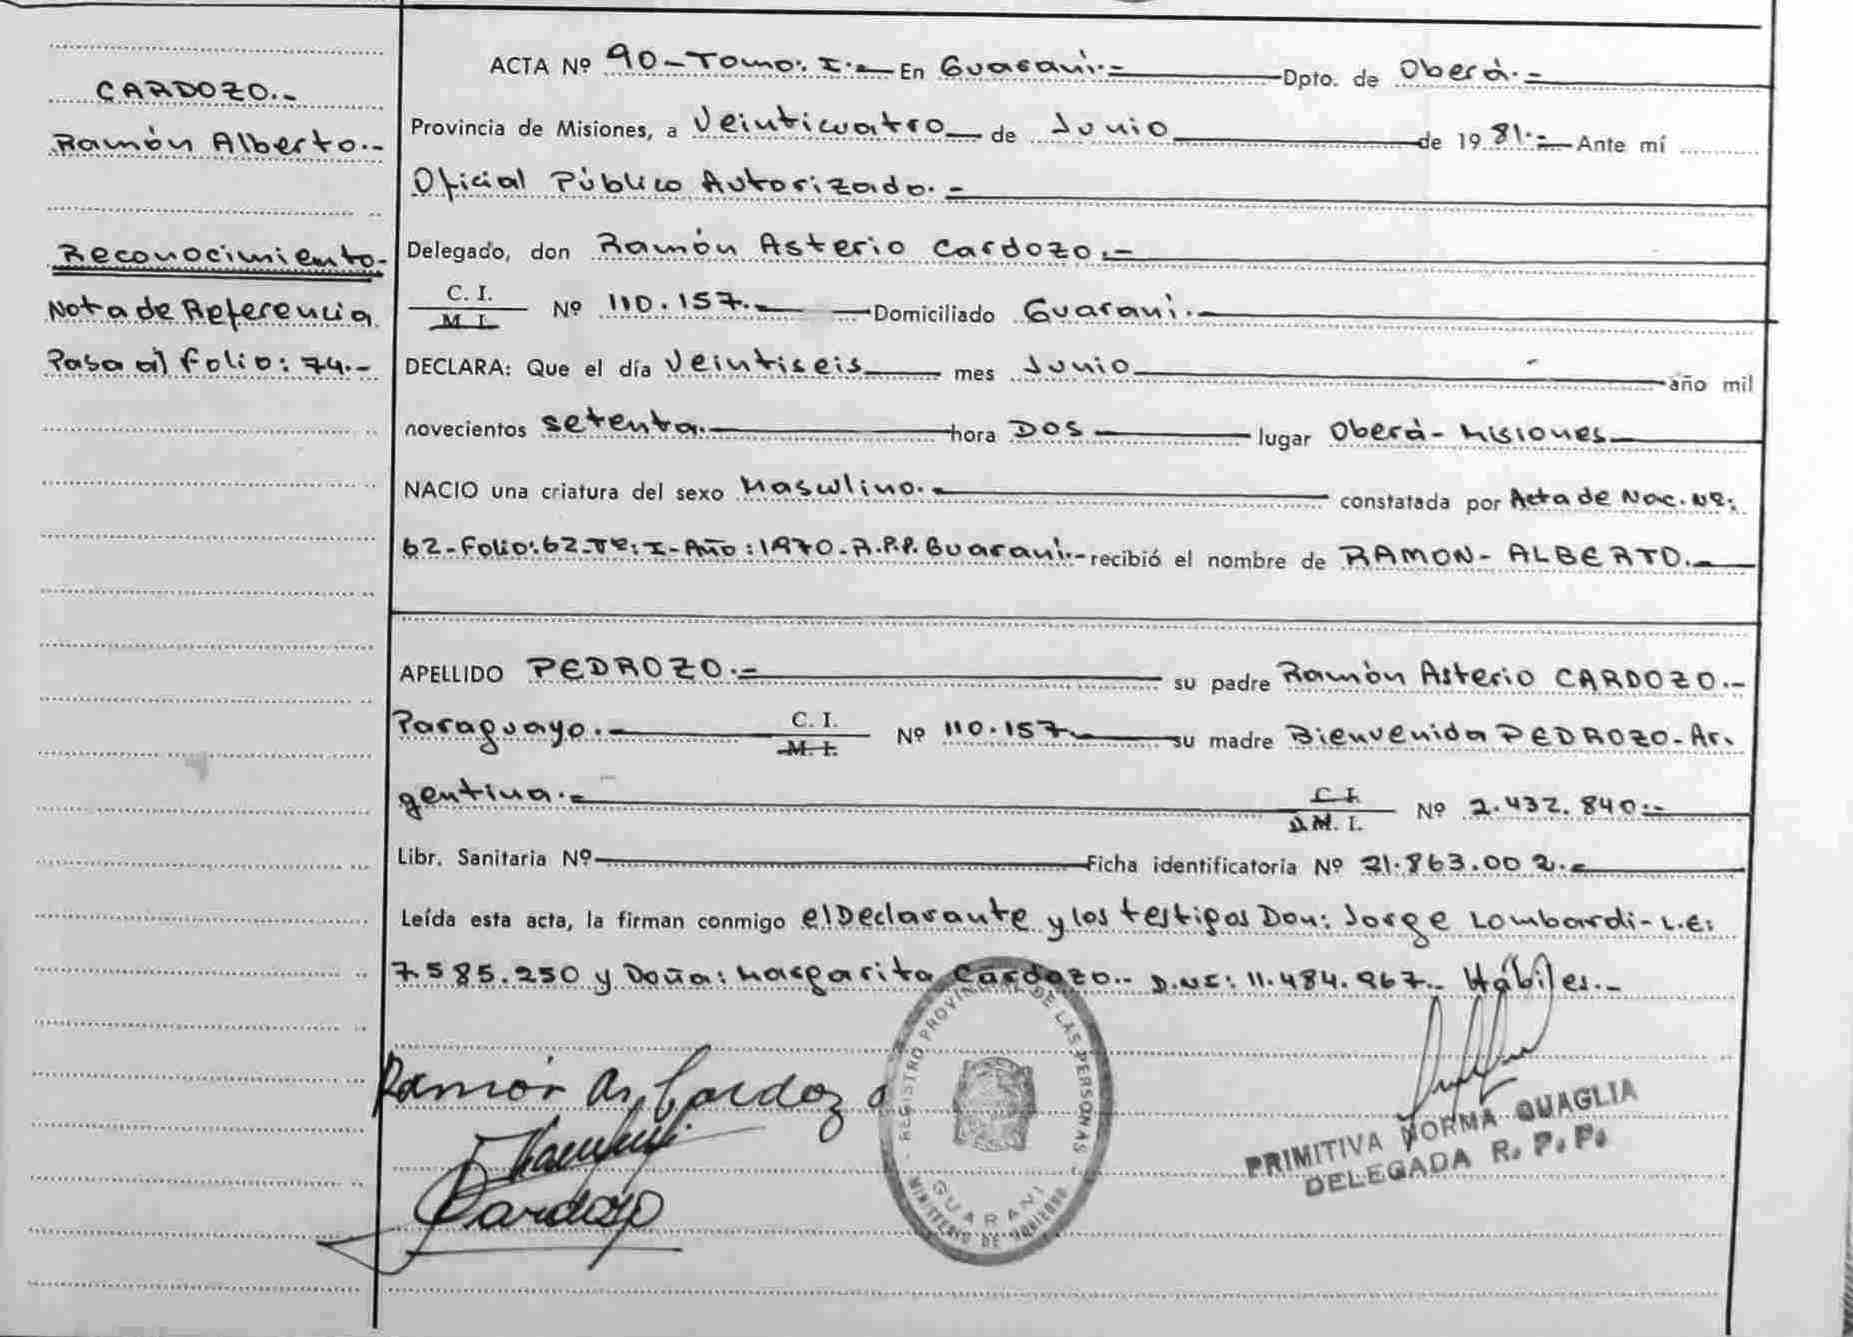 CARDOZO.-
Ramón Alberto.-
Reconocimiento-
Nota de Referencia
Pasa al folio: 74.-
ACTA Nº 90-Tomo: I.- En Guaraní.- Dpto. de Oberá.-
Provincia de Misiones, a Veinticuatro de Junio de 1981.- Ante mí
Oficial Público Autorizado.-
Delegado, don Ramón Asterio Cardozo.-
C. I.
M. I.
Nº 110.157.- Domiciliado Guaraní.-
DECLARA: Que el día Veintiseis mes Junio año mil
novecientos setenta.- hora DOS lugar Oberá-Misiones
NACIO una criatura del sexo Masculino.- constatada por Acta de Nac. Nº:
62-Folio:62-Tº:I-Año:1970-R.P.P. Guaraní.- recibió el nombre de RAMON-ALBERTO.-
APELLIDO PEDROZO.- su padre Ramón Asterio CARDOZO.-
Paraguayo.- C. I. Nº 110.157 su madre Bienvenida PEDROZO-Ar.
M. I.
gentina.- C. I. Nº 2.432.840.-
D M. I.
Libr. Sanitaria Nº Ficha identificatoria Nº 21.863.002.-
Leída esta acta, la firman conmigo el Declarante y los testigos Don: Jorge Lombardi-L.E:
7.585.250 y Doña: Margarita Cardozo.- D.N.I: 11.484.967.- Hábiles.-
Ramón As. Cardozo
Cardozo
REGISTRO PROVINCIAL DE LAS PERSONAS
GUARANI
MINISTERIO DE GOBIERNO
PRIMITIVA NORMA QUAGLIA
DELEGADA R. P. P.